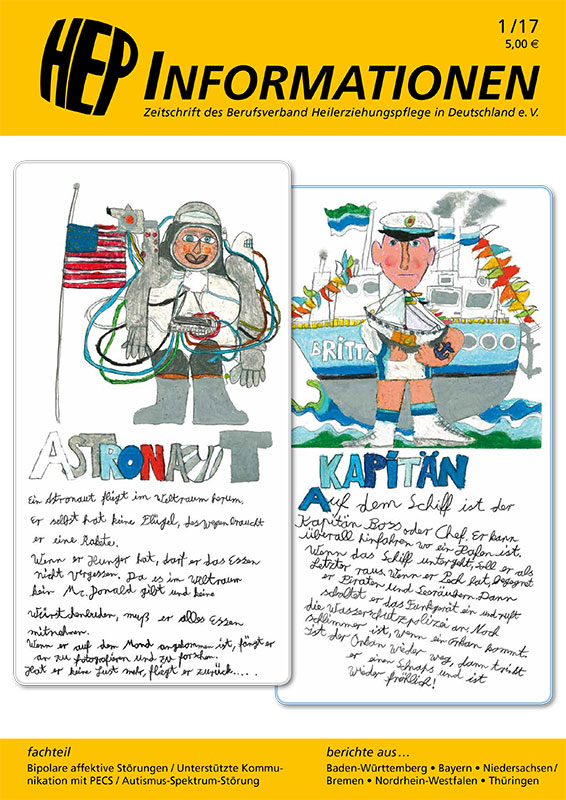 1/17
5,00 €
HEP INFORMATIONEN
Zeitschrift des Berufsverband Heilerziehungspflege in Deutschland e. V.
BRITTA
ASTRONAUT
Ein Astronaut fliegt im Weltraum herum.
Er selbst hat keine Flügel, deswegen braucht
er eine Rakete.
Wenn er Hunger hat, darf er das Essen
nicht vergessen. Da es im Weltraum
kein Mc. Donald gibt und keine
Würstchenbuden, muß er alles Essen
mitnehmen.
Wenn er auf dem Mond angekommen ist, fängt er
an zu fotografieren und zu forschen.
Hat er keine Lust mehr, fliegt er zurück.....
KAPITÄN
Auf dem Schiff ist der
Kapitän Boss oder Chef. Er kann
überall hinfahren wo ein Hafen ist.
Wenn das Schiff untergeht, soll er als
Letzter raus. Wenn er Pech hat, begegnet
er Piraten und Seeräubern. Dann
schaltet er das Funkgerät ein und ruft
die Wasserschutzpolizei an. Noch
schlimmer ist, wenn ein Orkan kommt.
Ist der Orkan wieder weg, dann trinkt
er einen Schnaps und ist
wieder fröhlich!
fachteil
Bipolare affektive Störungen / Unterstützte Kommu-
nikation mit PECS / Autismus-Spektrum-Störung
berichte aus...
Baden-Württemberg • Bayern • Niedersachsen/
Bremen • Nordrhein-Westfalen • Thüringen